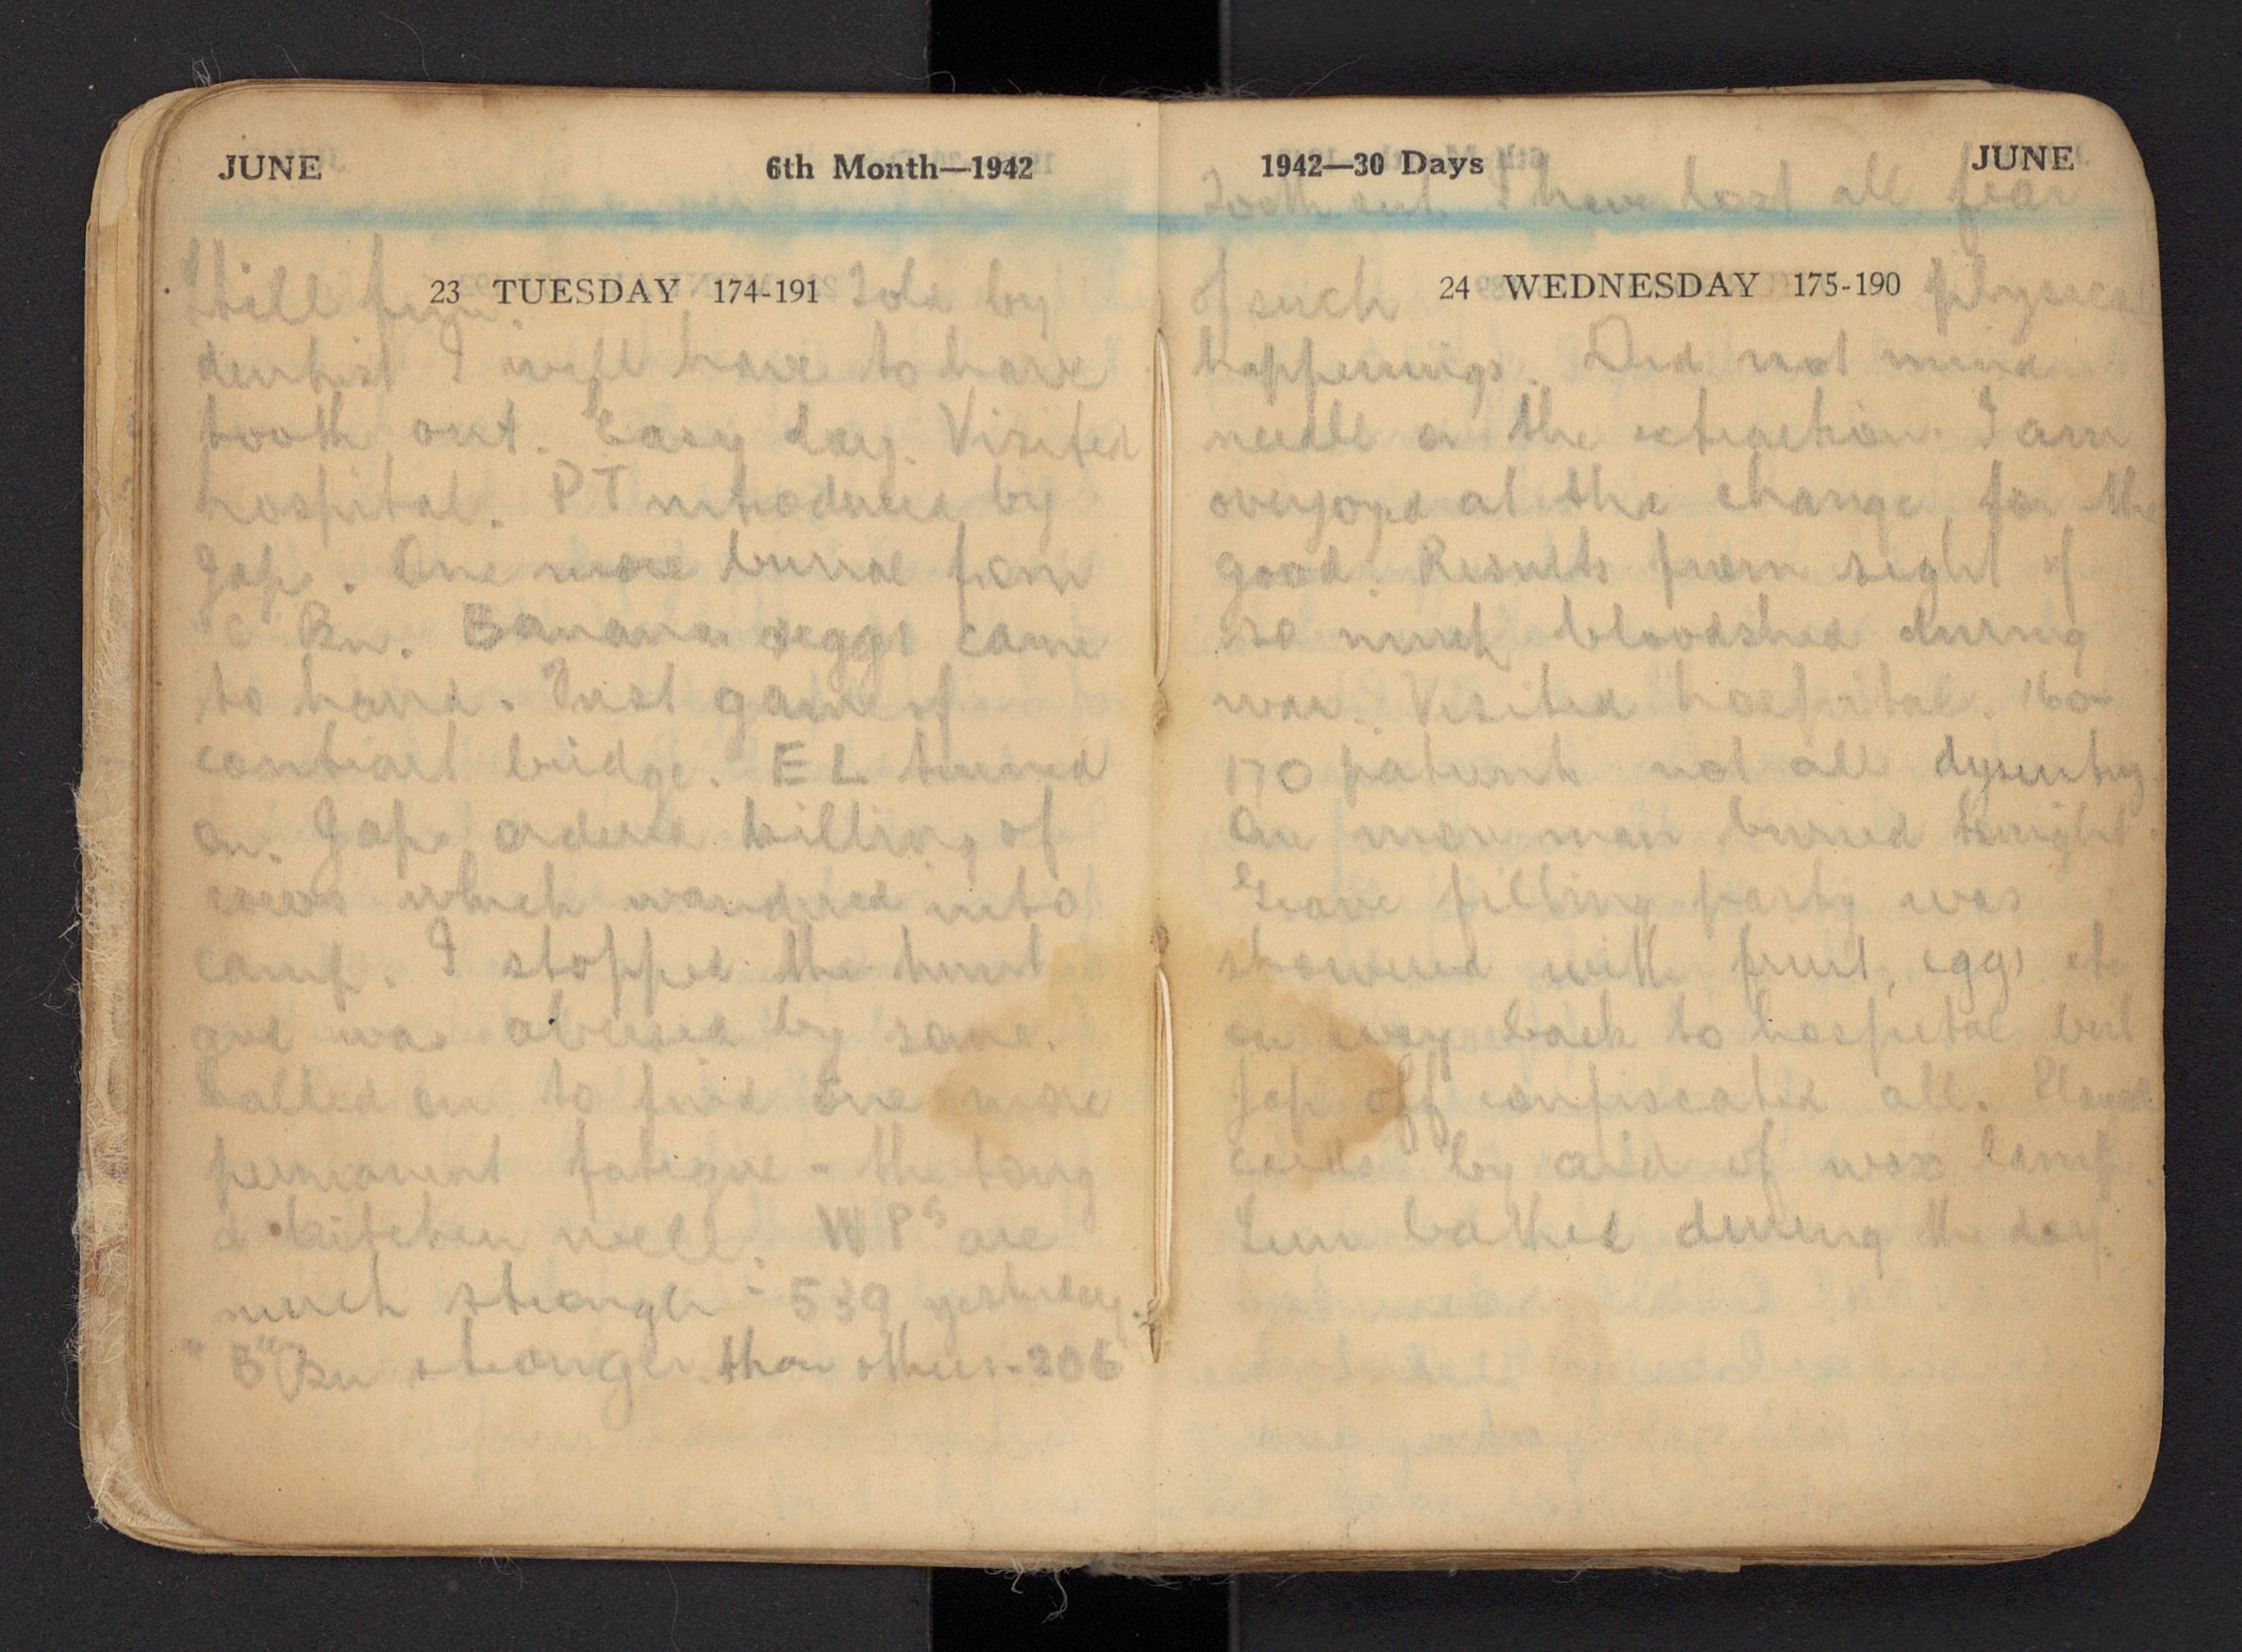 JUNE 6th Month—1942
23 TUESDAY 174-191
Still fine. Told by
dentist I will have to have
tooth out. Easy day. Visited
hospital. PT introduced by
Japs. One more burial from
"C" Bn. Banana & eggs came
to hand. First game of
contract bridge. E L turned
on. Japs ordered killing of
cows which wandered into
camp. I stopped the hunt
and was abused by some.
Called on to find one more
permanent fatigue - the
a kitchen well. WPs are
much stronger - 539 yesterday.
"B" Bn stronger than others - 206
1942—30 Days JUNE
Tooth out. I have lost all fear
24 WEDNESDAY 175-190
of such physical
happenings. Did not mind
needle or the extraction. I am
overjoyed at the change, for the
good. Results from sight of
so much bloodshed during
war. Visited hospital. 160-
170 patients not all dysentery.
One more man buried tonight.
Grave filling party was
showered with fruit, eggs etc
on way back to hospital but
Jap off confiscated all. Played
cards by aid of wax lamp.
Sun bathed during the day.